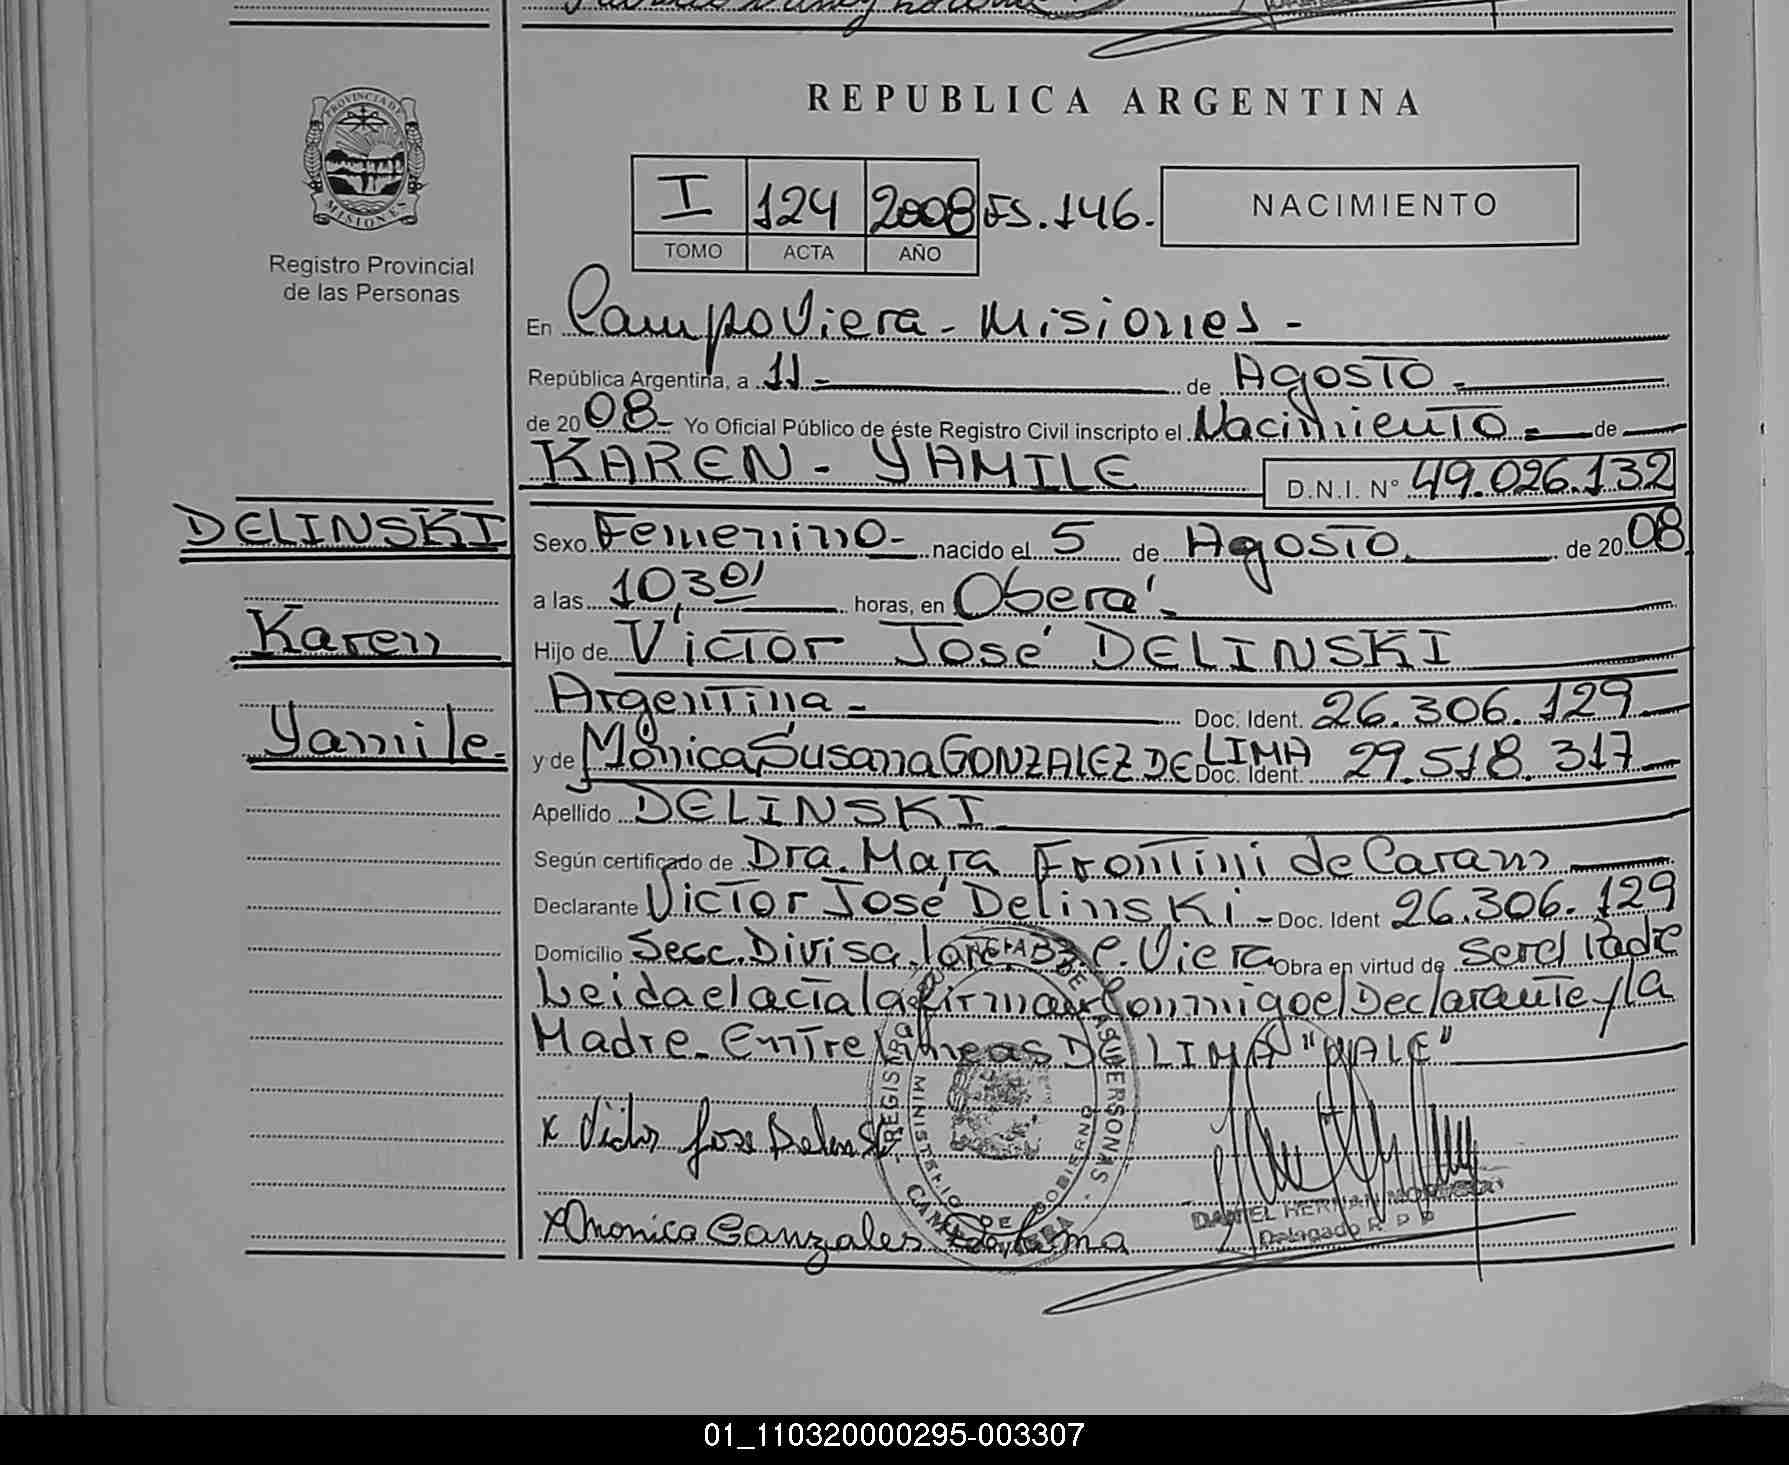 REPUBLICA ARGENTINA
PROVINCIA DE
MISIONES
Registro Provincial
de las Personas
I 124 2008 FS. 146.
TOMO ACTA AÑO
NACIMIENTO
En Campo Viera - Misiones -
República Argentina, a 11 - de Agosto -
de 2008 - Yo Oficial Público de éste Registro Civil inscripto el Nacimiento - de
KAREN - YAMILE D.N.I. N° 49.026.132
DELINSKI
Karen
Yamile.
Sexo Femenino - nacido el 5 de Agosto de 2008
a las 10,30 horas, en Oberá -
Hijo de Víctor José DELINSKI
Argentina - Doc. Ident. 26.306.129
y de Mónica Susana GONZALEZ DE LIMA Doc. Ident. 29.518.317
Apellido DELINSKI
Según certificado de Dra. Mara Frontini de
Declarante Victor José Delinski - Doc. Ident 26.306.129
Domicilio Secc. Divisa. C. Viera Obra en virtud de ser el Padre
Leida el acta la firman Conmigo el Declarante y la
Madre. Entre Lineas DE LIMA "VALE"
x Victor Jose
x Monica Gonzales De Lima
DANIEL HERNAN
Delegado R P P
MINISTERIO DE GOBIERNO
01_110320000295-003307